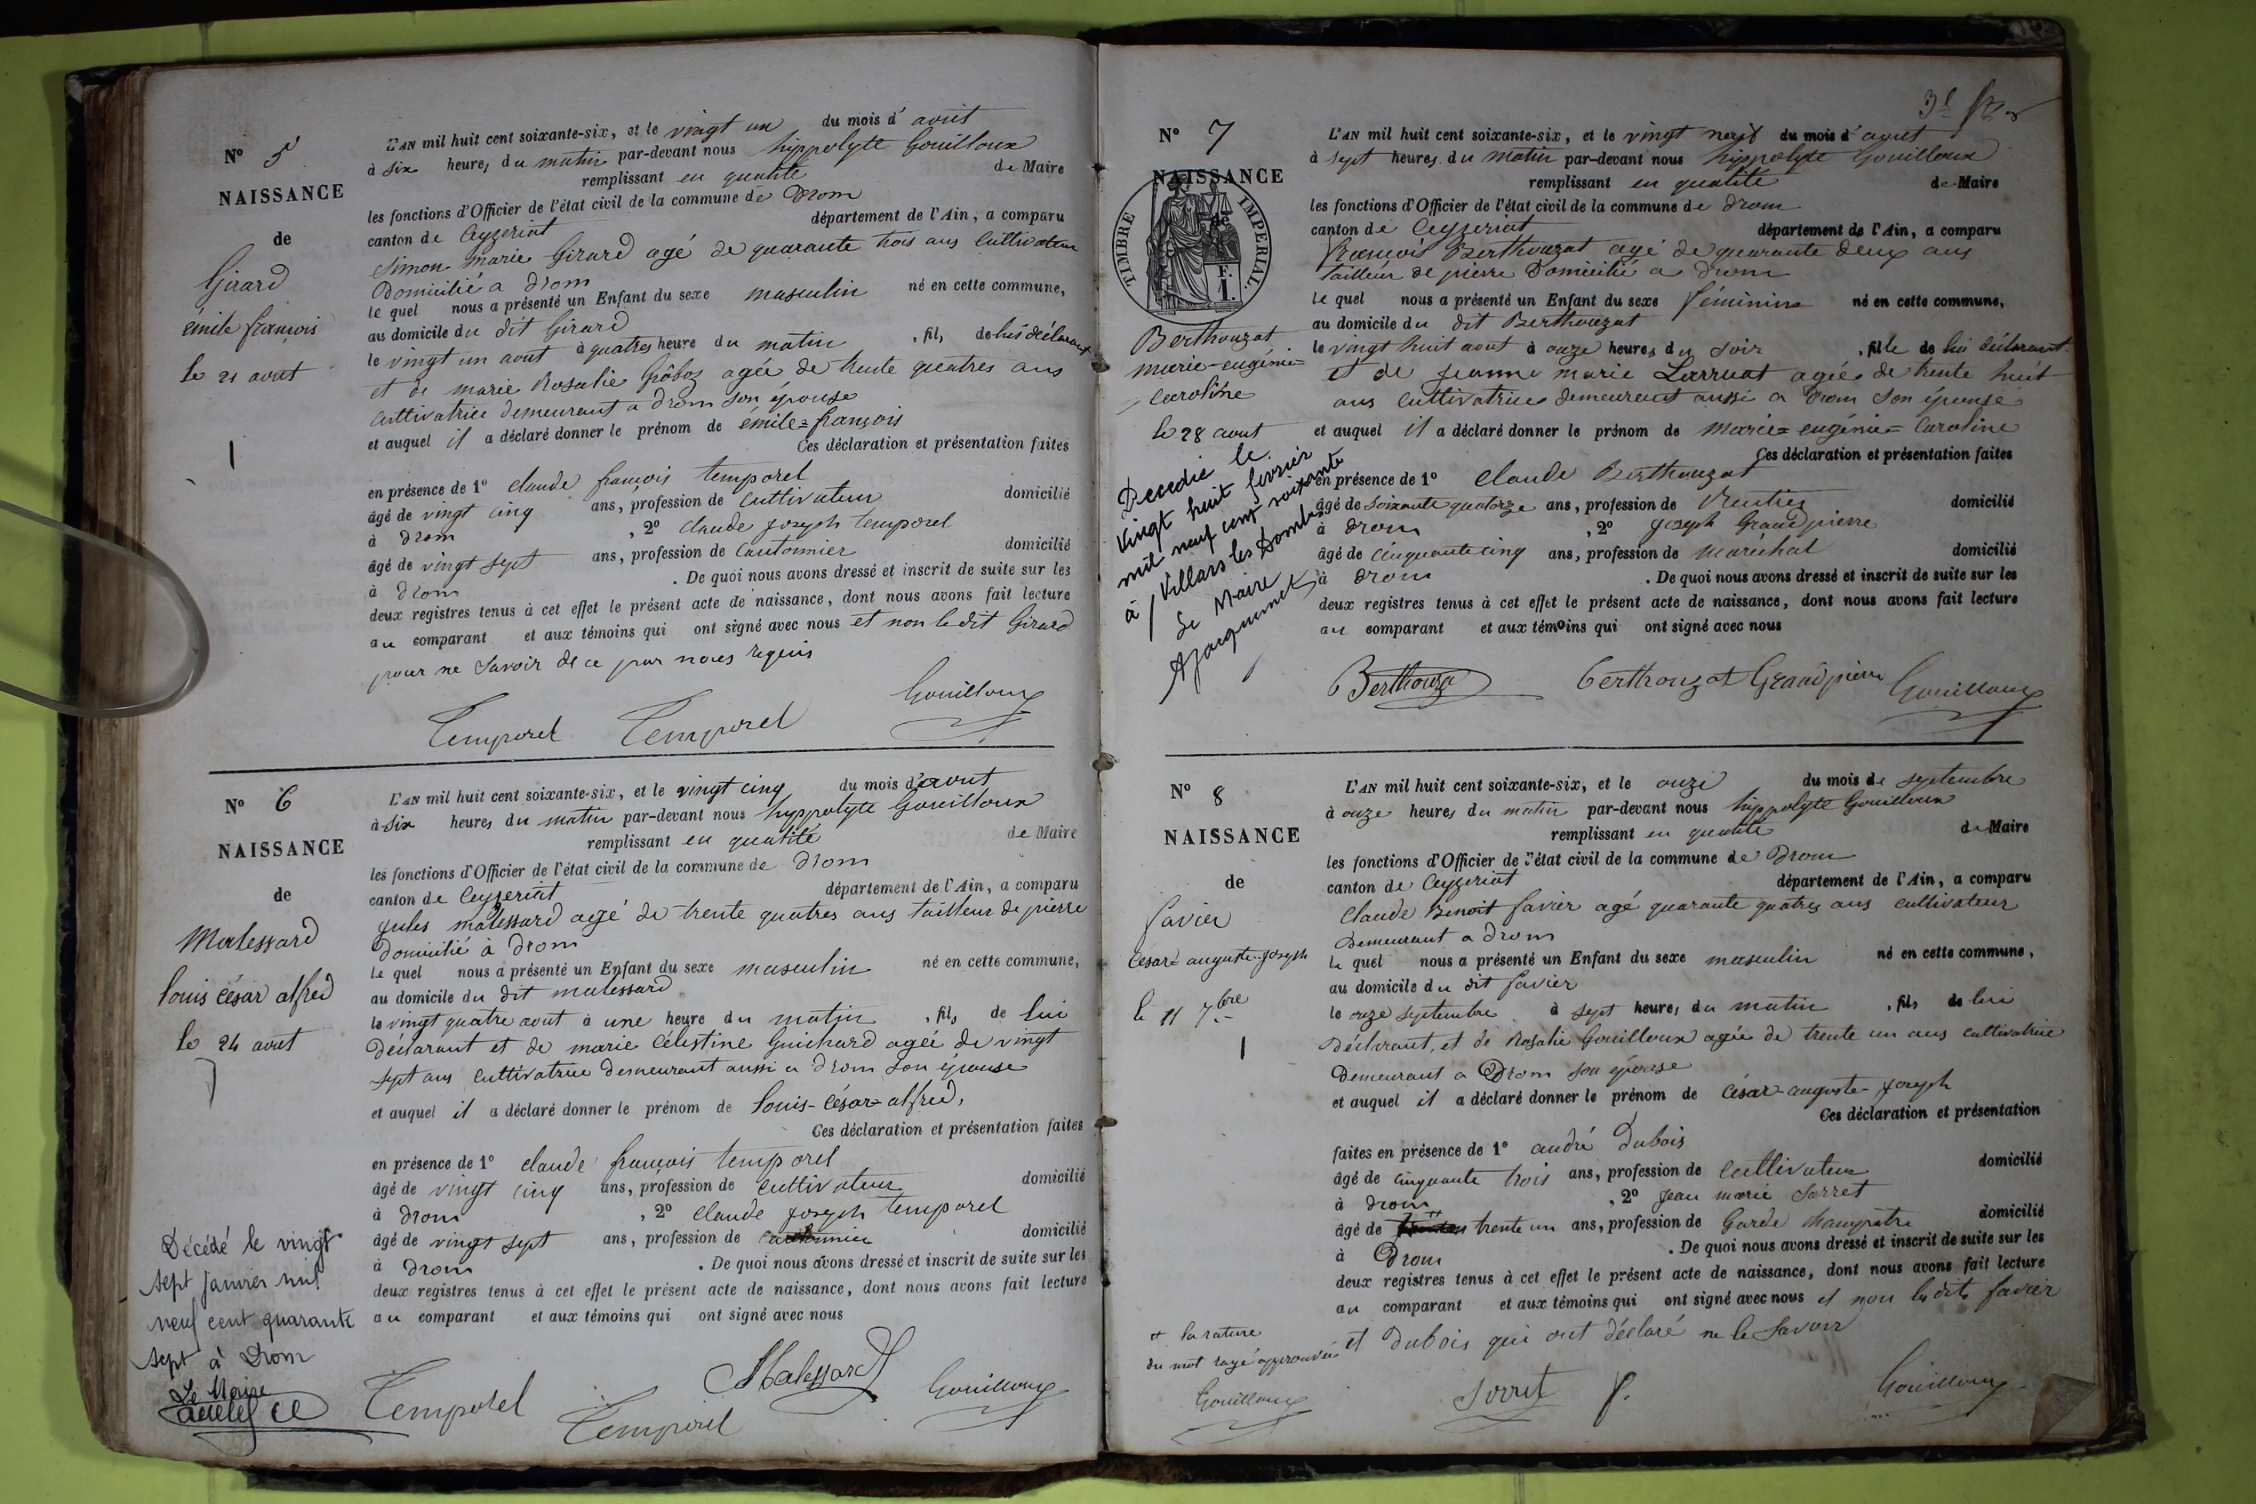 N° 5
NAISSANCE
de
Girard
émile françois
le 21 aout
L'AN mil huit cent soixante-six, et le vingt un du mois d'aout
à six heures du matin par-devant nous hippolyte Gouilloux
remplissant en qualité de Maire
les fonctions d'Officier de l'état civil de la commune de Drom
canton de Ceyzeriat département de l'Ain, a comparu
Simon marie Girard agé de quarante trois ans Cultivateur
Domicilié a Drom
le quel nous a présenté un Enfant du sexe masculin né en cette commune,
au domicile du dit Girard
le vingt un aout à quatres heure du matin , fils de lui déclarant
et de marie Rosalie Gôboz agée de trente quatres ans
Cultivatrice demeurant a Drom son épouse
et auquel il a déclaré donner le prénom de émile=françois
Ces déclaration et présentation faites
en présence de 1° claude françois temporel
âgé de vingt cinq ans, profession de Cultivateur domicilié
à Drom , 2° claude joseph temporel
âgé de vingt sept ans, profession de Cantonnier domicilié
à Drom . De quoi nous avons dressé et inscrit de suite sur les
deux registres tenus à cet effet le présent acte de naissance, dont nous avons fait lecture
au comparant et aux témoins qui ont signé avec nous et non le dit Girard
pour ne savoir de ce par nous requis
Temporel Temporel Gouilloux
N° 6
NAISSANCE
de
Malessard
louis césar alfred
le 24 aout
Décédé le vingt
sept janvier mil
neuf cent quarante
sept à Drom
Le Maire
L'AN mil huit cent soixante-six, et le vingt cinq du mois d'aout
à six heures du matin par-devant nous hyppolyte Gouilloux
remplissant en qualité de Maire
les fonctions d'Officier de l'état civil de la commune de Drom
canton de Ceyzeriat département de l'Ain, a comparu
jules malessard agé de trente quatres ans tailleur de pierre
Domicilié à Drom
le quel nous a présenté un Enfant du sexe masculin né en cette commune,
au domicile du dit malessard
le vingt quatre aout à une heure du matin , fils de lui
Déclarant et de marie Célestine Guichard agée de vingt
sept ans Cultivatrice demeurant aussi a Drom son épouse
et auquel il a déclaré donner le prénom de louis-César=alfred,
Ces déclaration et présentation faites
en présence de 1° claude françois temporel
âgé de vingt cinq ans, profession de Cultivateur domicilié
à Drom , 2° claude joseph temporel
âgé de vingt sept ans, profession de Cantonnier domicilié
à Drom . De quoi nous avons dressé et inscrit de suite sur les
deux registres tenus à cet effet le présent acte de naissance, dont nous avons fait lecture
au comparant et aux témoins qui ont signé avec nous
Temporel Temporel Malessard Gouilloux
N° 7
NAISSANCE
de
TIMBRE IMPERIAL.
F.
1.
Berthouzat
marie-eugénie=
Caroline
le 28 aout
Decedée le
vingt huit fevrier
mil neuf cent soixante
à Villars les Dombes
Le Maire
3e
L'AN mil huit cent soixante-six, et le vingt neuf du mois d'aout
à sept heures du matin par-devant nous hyppolyte Gouilloux
remplissant en qualité de Maire
les fonctions d'Officier de l'état civil de la commune de Drom
canton de Ceyzeriat département de l'Ain, a comparu
françois Berthouzat agé de quarante deux ans
tailleur de pierre Domicilié a Drom
le quel nous a présenté un Enfant du sexe féminin né en cette commune,
au domicile du dit Berthouzat
le vingt huit aout à onze heures du soir , fille de lui déclarant
et de jeanne marie Larruat agée de trente huit
ans Cultivatrice demeurant aussi a Drom son épouse
et auquel il a déclaré donner le prénom de marie=eugénie=Caroline
Ces déclaration et présentation faites
en présence de 1° Claude Berthouzat
âgé de soixante quatorze ans, profession de Rentier domicilié
à Drom , 2° joseph Grandpierre
âgé de cinquante cinq ans, profession de maréchal domicilié
à Drom . De quoi nous avons dressé et inscrit de suite sur les
deux registres tenus à cet effet le présent acte de naissance, dont nous avons fait lecture
au comparant et aux témoins qui ont signé avec nous
Berthouza berthouzat Grandpierre Gouilloux
N° 8
NAISSANCE
de
favier
César=auguste=joseph
le 11 7bre
L'AN mil huit cent soixante-six, et le onze du mois de septembre
à onze heures du matin par-devant nous hyppolyte Gouilloux
remplissant en qualité de Maire
les fonctions d'Officier de l'état civil de la commune de Drom
canton de Ceyzeriat département de l'Ain, a comparu
Claude Benoit favier agé quarante quatres ans cultivateur
Demeurant a Drom
le quel nous a présenté un Enfant du sexe masculin né en cette commune,
au domicile du dit favier
le onze septembre à sept heures du matin , fils de lui
Déclarant, et de Rosalie Gouilloux agée de trente un ans cultivatrice
Demeurant a Drom son épouse
et auquel il a déclaré donner le prénom de César-auguste-joseph
Ces déclaration et présentation
faites en présence de 1° andré Dubois
âgé de cinquante trois ans, profession de Cultivateur domicilié
à Drom , 2° Jean marie Sorret
âgé de trente un ans, profession de Garde champêtre domicilié
à Drom . De quoi nous avons dressé et inscrit de suite sur les
deux registres tenus à cet effet le présent acte de naissance, dont nous avons fait lecture
au comparant et aux témoins qui ont signé avec nous et non les dits favier
et Dubois qui ont déclaré ne le savoir
+ la rature
du mot rayé approuvée
Gouilloux
Sorret Gouilloux